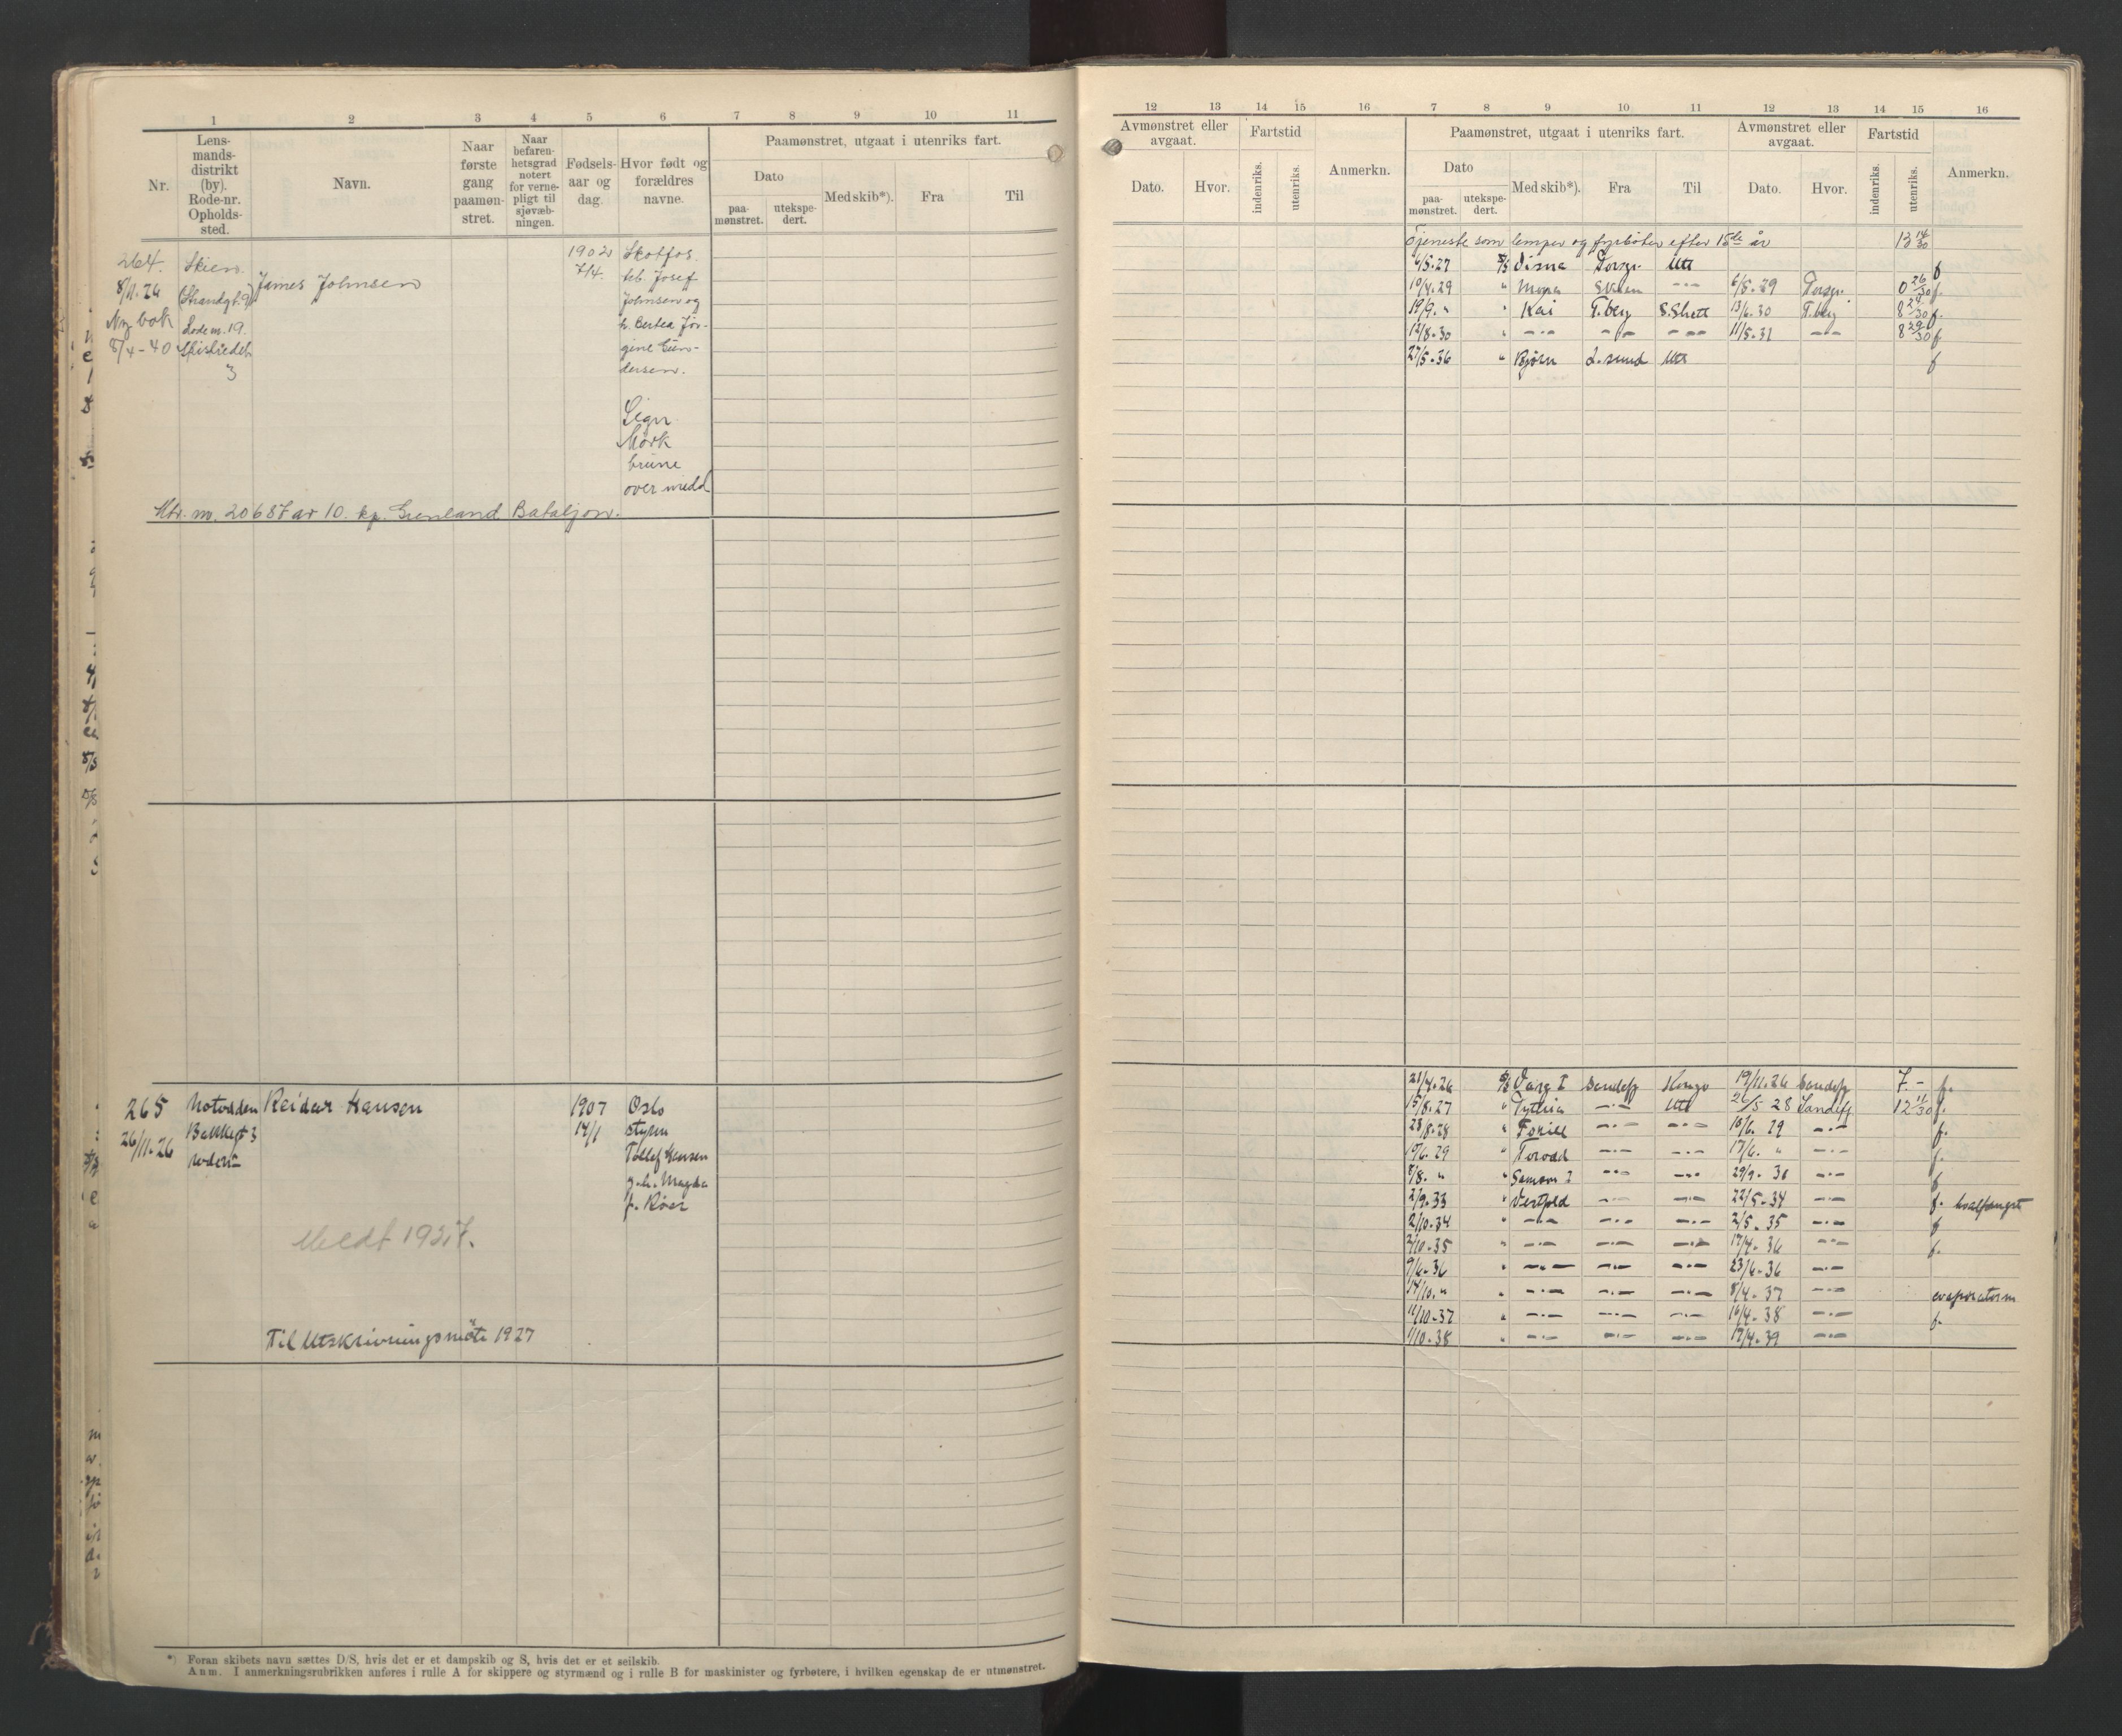 1 2 3 4 5 6 7 8 9 10 11
Nr.
Lens-
mands-
distrikt
(by).
Rode-nr.
Opholds-
sted.
Navn.
Naar
første
gang
paamøn-
stret.
Naar
befaren-
hetsgrad
notert
for verne-
pligt til
sjøvæb-
ningen.
Fødsels-
aar og
dag.
Hvor født og
forældres
navne.
Paamønstret, utgaat i utenriks fart.
Dato
paa-
mønstret.
utekspe-
dert.
Med skib*).
Fra
Til
264.
8/11.26
Ny bok
8/4-40
Skien.
Strandgt. 9
Rode nr. 19.
3
James Johnsen
1902
7/4.
Skotfos.
Josef
Johnsen og
h. Bertea Jør-
gine Gun-
dersen.
Sign.
Mørk
brune
over medd.
Mtr. nr. 20687 av 10. kp. Grenland Bataljon.
265
26/11.26
Notodden
Bakkegt 3
Reidar Hansen
1907
14/1
Oslo
styrm
Tollef Hansen
g.h. Magda
f. Röer
Meldt 1927.
Til Utskrivningsmöte 1927
*) Foran skibets navn sættes D/S, hvis det er et dampskib og S, hvis det er et seilskib.
Anm. I anmerkningsrubrikken anføres i rulle A for skippere og styrmænd og i rulle B for maskinister og fyrbøtere, i hvilken egenskap de er utmønstret.
12 13 14 15 16 7 8 9 10 11 12 13 14 15 16
Avmønstret eller
avgaat.
Dato.
Hvor.
Fartstid
indenriks.
utenriks.
Anmerkn.
Paamønstret, utgaat i utenriks fart.
Dato
paa-
mønstret.
utekspe-
dert.
Med skib*).
Fra
Til
Avmønstret eller
avgaat.
Dato.
Hvor.
Fartstid
indenriks.
utenriks.
Anmerkn.
Tjeneste som lemper og fyrböter efter 15de år 13 14/30
6/5.27 D/S Disna Porsgr. Uts f
10/4.29 " Skien —"— 6/5.29 Porsgr. 0 26/30 f.
19/9. " " Kai T.berg S.Shetl 13/6.30 T.berg 8 24/30 f.
12/8.30 " —"— —"— —"— 11/5.31 —"— 8 29/30 f
27/5.36 " Björn L.sund Uts f
21/4.26 D/S Varg I Sandefj Kongo 19/11.26 Sandefj 7.- f.
15/8.27 " Pythia —"— Uts 26/5 28 Sandefj 12 11/30 f.
23/8.28 " —"— —"— 10/6. 29 —"— f.
10/6.29 " Torodd —"— —"— 17/6. " —"— f.
8/8. " " Samson I —"— —"— 29/9. 30 —"— f
2/9.33 " Vestfold —"— —"— 22/5.34 —"— f. hvalfangst
2/10.34 " —"— —"— —"— 2/5.35 —"— f
2/10.35 " —"— —"— —"— 17/4.36 —"— f.
9/6.36 " —"— —"— —"— 23/6.36 —"—
14/10. " " —"— —"— —"— 8/4.37 —"— evaporatorm
11/10.37 " —"— —"— —"— 16/4.38 —"— f.
1/10.38 " —"— —"— —"— 17/4.39 —"—